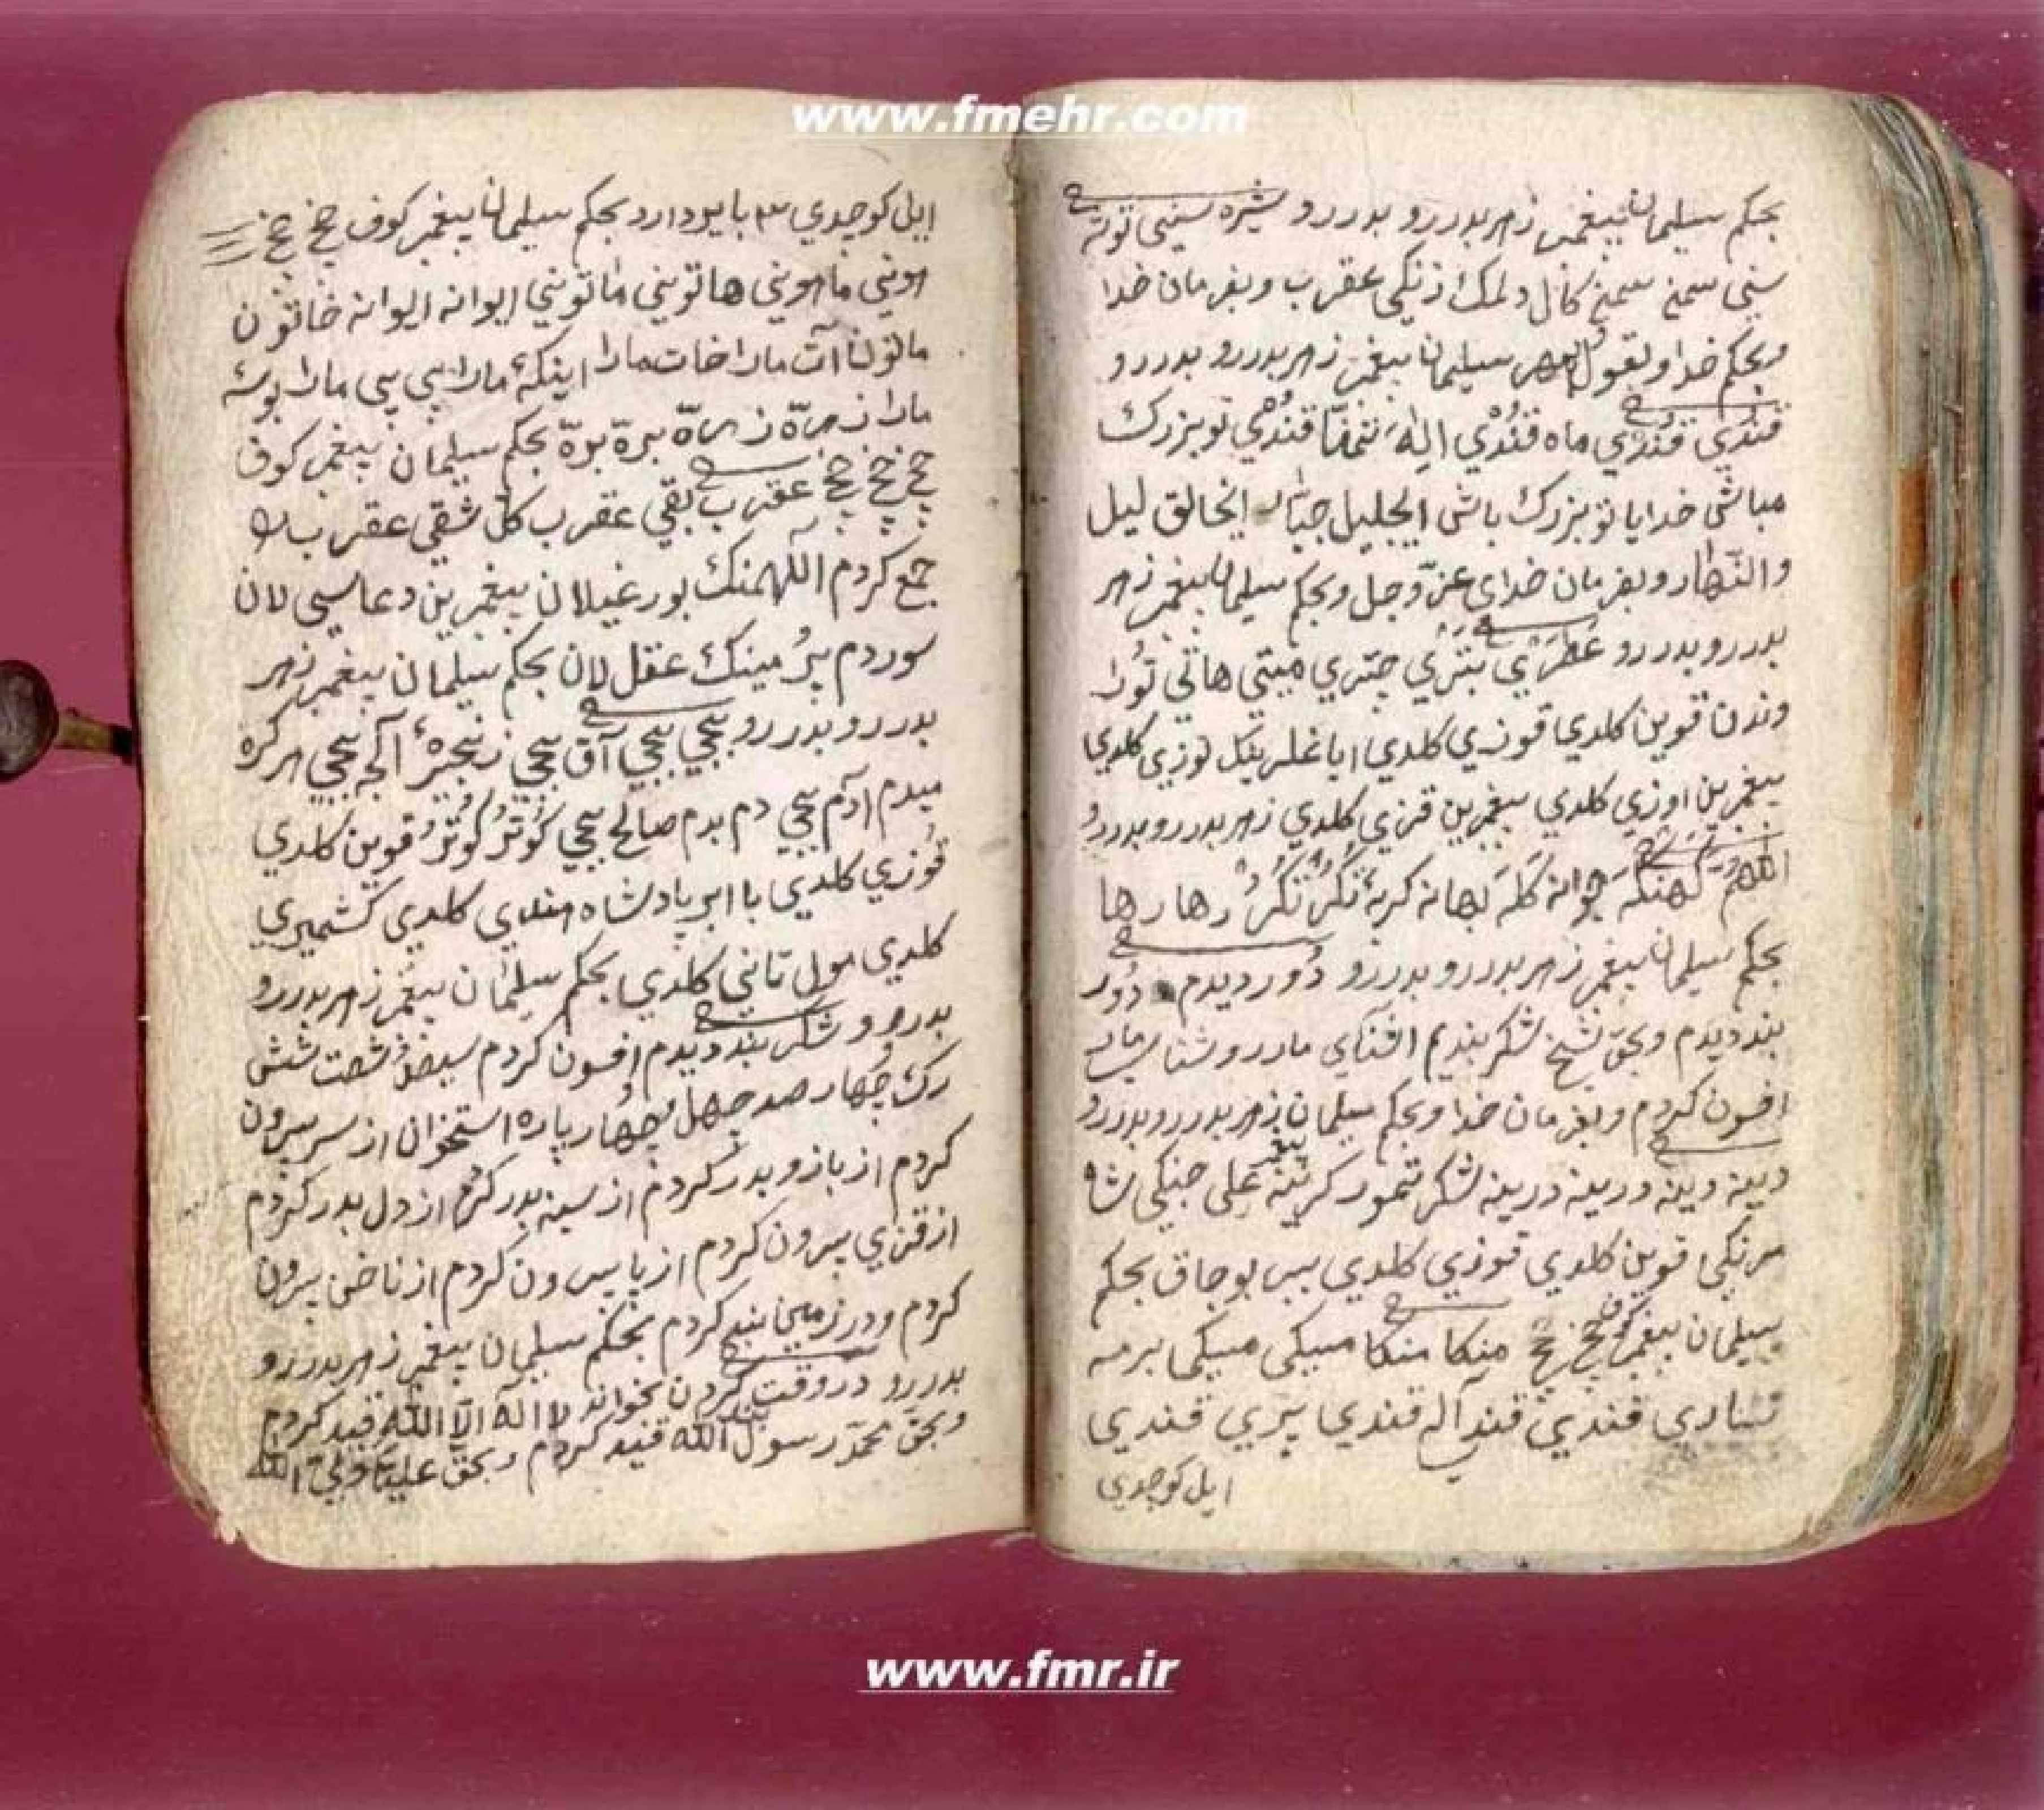 www.fmehr.com
بحکم سیلمان پیغمبر زهر بدررو بدررو شیره سینی توته
سنی سمنج سمنج کال ولمک زنکی عقرب و بفرمان خدا
و بحکم خدا و بقول سیلمان پیغمبر زهر بدررو بدررو
قندی قندی ماه قندی الله قندی تو بزرک
مباش خدایا تو بزرک باش الجلیل جبار الخالق لیل
والنهار و بفرمان خدای عز و جل و بحکم سیلمان پیغمبر زهر
بدررو بدررو بتری چتری هیتی هاتی تورا
وندن قوین کلدی قوزی کلدی ایاغلرینک توزی کلدی
پیغمبرین اوزی کلدی پیغمبرین قزی کلدی زهر بدررو بدررو
اللهم کهنکه جوانه کله بهانه کربه تکر تکر رها رها
بحکم سیلمان پیغمبر زهر بدررو بدررو دور دیدم دور
بند دیدم و بحق شیخ شکر بندیم مادر و شتا
افسون کردم و بفرمان خدا و بحکم سیلمان پیغمبر زهر بدررو بدررو
دینه دینه درینه درینه شکر تتمور کرینه علی جنکی شاه
مرنکی قوین کلدی قوزی کلدی بس بوجاق بحکم
سیلمان پیغمبر کوف خخ منکا منکا میکی میکی برمه
قندی قند اله قندی پری قندی
ایل کوچدی
ایل کوچدی ۳ باید دارد بحکم سیلمان پیغمبر کوف خخ خخ
هونی ماهونی هاتونی ماتونی ایوانه ایوانه خاتون
ماتون آت مارا خات مارا اینکه مارا پی پی مارا بوسه
مارا زره زره بره بوه بحکم سیلمان پیغمبر کوف
خخ خخ خخ عقرب بقی عقرب کل شقی عقرب را
جمع کردم اللهمنک بورغیلان پیغمبرین دعاسی لان
سوردم پر مینک عقل لان بحکم سیلمان پیغمبر زهر
بدررو بدررو بیجی بیجی آق بیجی زنجیره آله بیجی هر کره
میدم آدم بیجی دم بدم صالح بیجی کوتر کوتر قوین کلدی
قوزی کلدی با ابر پادشاه کلدی کشمیری
کلدی مول تانی کلدی بحکم سیلمان پیغمبر زهر بدررو
بدررو شکر بند دیدم افسون کردم سیصد و شصت شش
رک چهار صد چهل و چهار پاره استخوان از سر بیرون
کردم از بازو بدر کردم از سینه بدر کردم از دل بدر کردم
از قزی بیرون کردم از پا بیرون کردم از ناخن بیرون
کردم و در زمین بند کردم بحکم سیلمان پیغمبر زهر بدررو
بدررو در وقت بند کردن بخواند لا اله الا الله قید کردم
و بحق محمد رسول الله قید کردم و بحق علیا ولی الله
www.fmr.ir